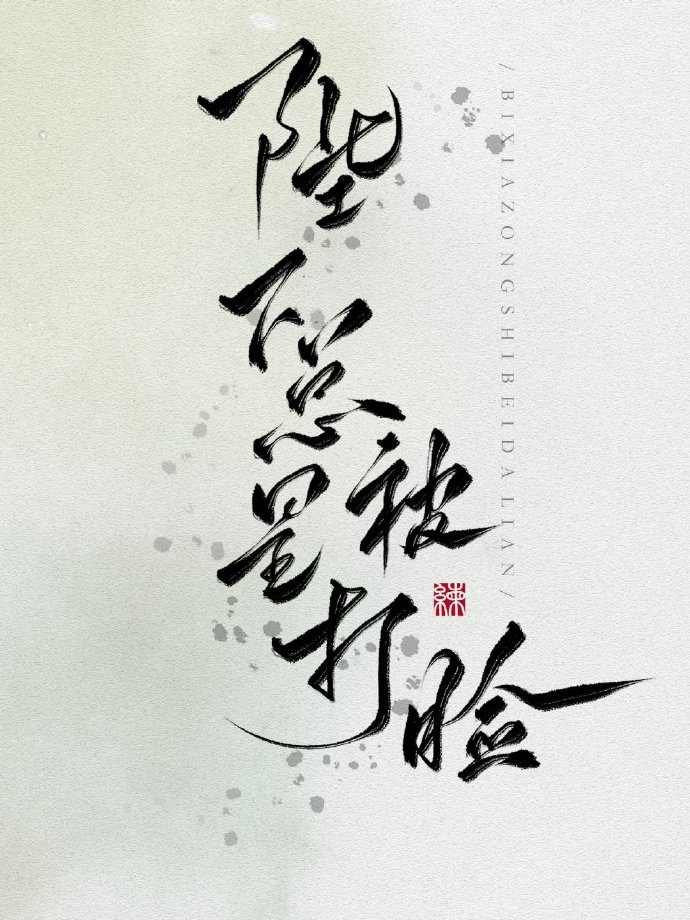 陛下总是被打脸
/BIXIAZONGSHIBEIDALIAN/
練